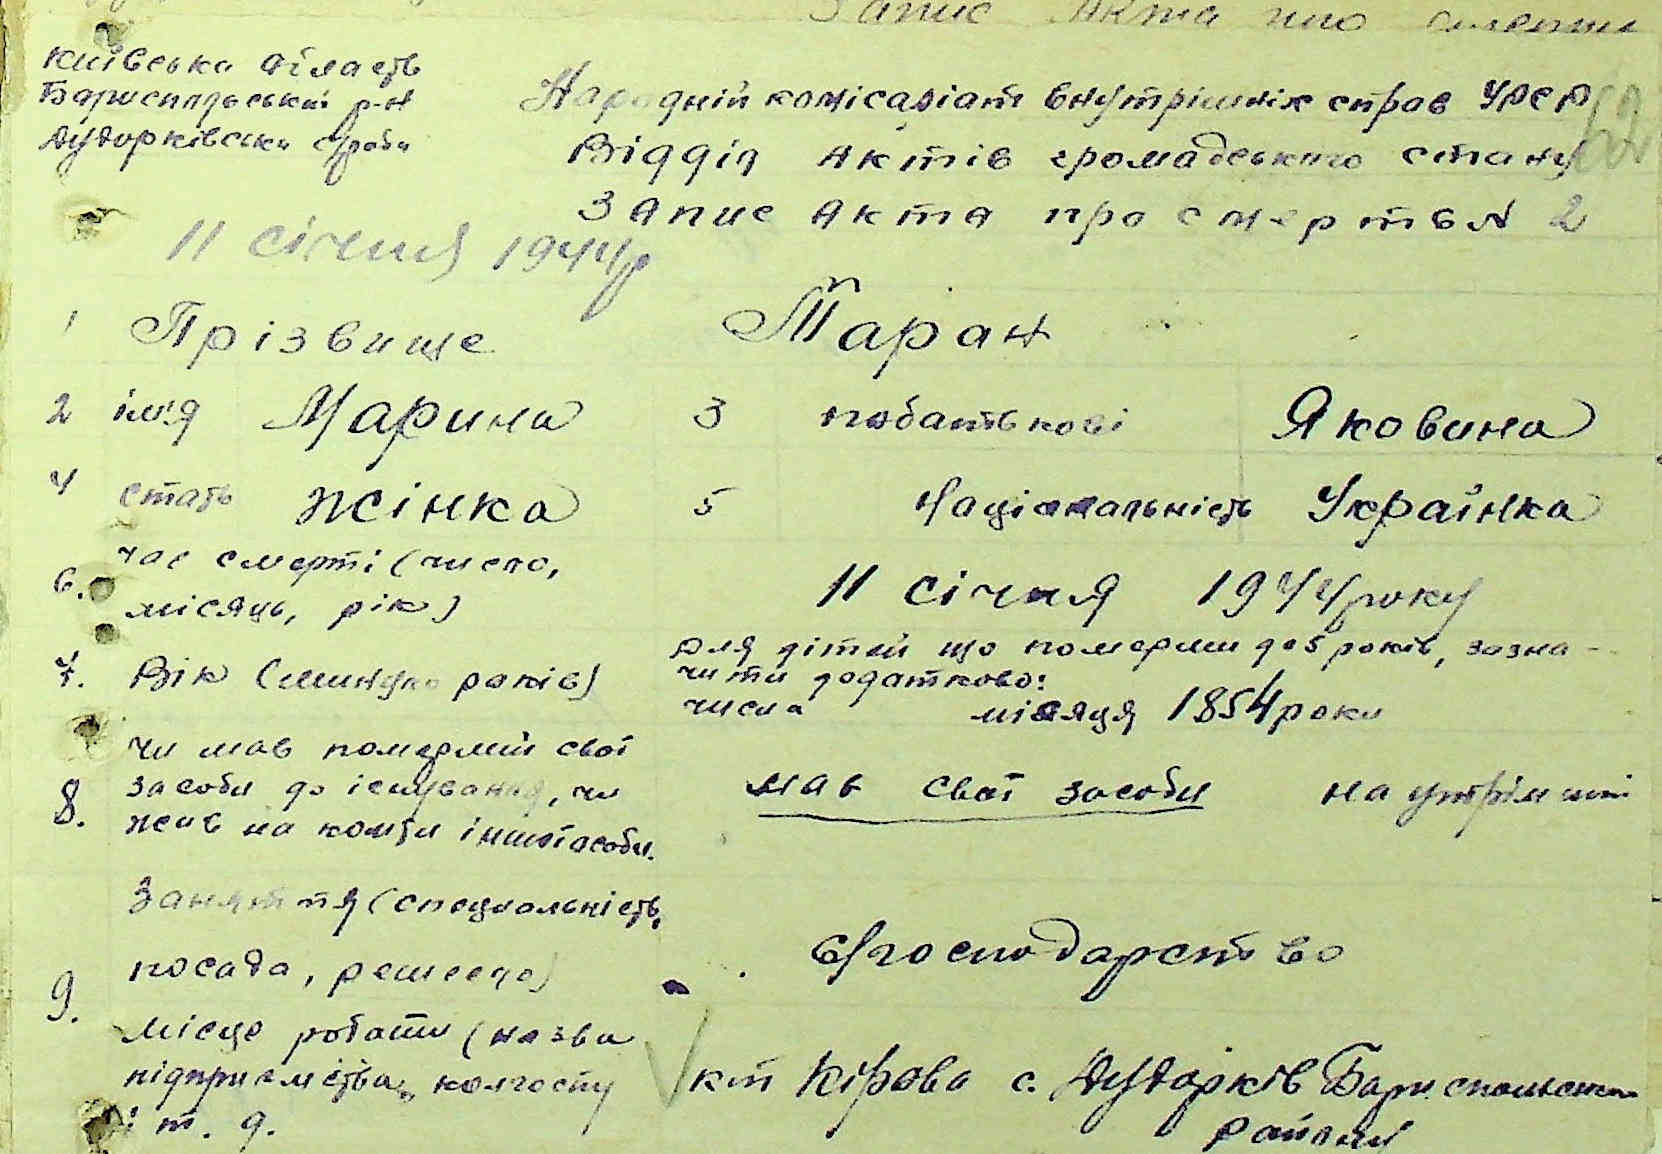 Запис Акта про смерть
Київська область
Бориспільський р-н
Дударківська с/рада
Народній комісаріат внутрішніх справ УРСР
Відділ Актів громадського стану
Запис Акта про смерть № 2
11 січня 1944р
1 Прізвище Таран
2 ім'я Марина 3 побатькові Яковина
4 стать жінка 5 Національність Українка
6. час смерті (число,
місяць, рік) 11 січня 1944 року
7. Вік (минуло років) для дітей що померли до 5 років, зазна-
чити додатково:
числа місяця 1854 роки
8. чи мав померлий свої
засоби до існування, чи
жив на кошти іншої особи.
мав свої засоби на утрімані
9. Заняття (специальність,
посада, ремесло) с/господарство
місце роботи (назва
підприємства, колгоспу
і т. д.
кт Кірова с. Дударків
району